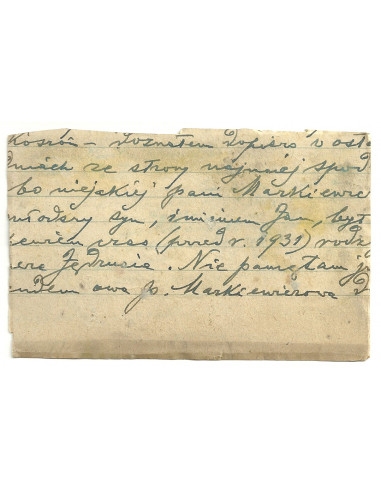 doznałem dopiero w osta
dniach ze strony najmniej spod
bo niejakiej pani Markiewic
młodszy syn, imieniem Jan, był
pewien czas (przed r. 1931) rodz
Jędrusia. Nie pamiętam j
owa p. Markiewiczowa d